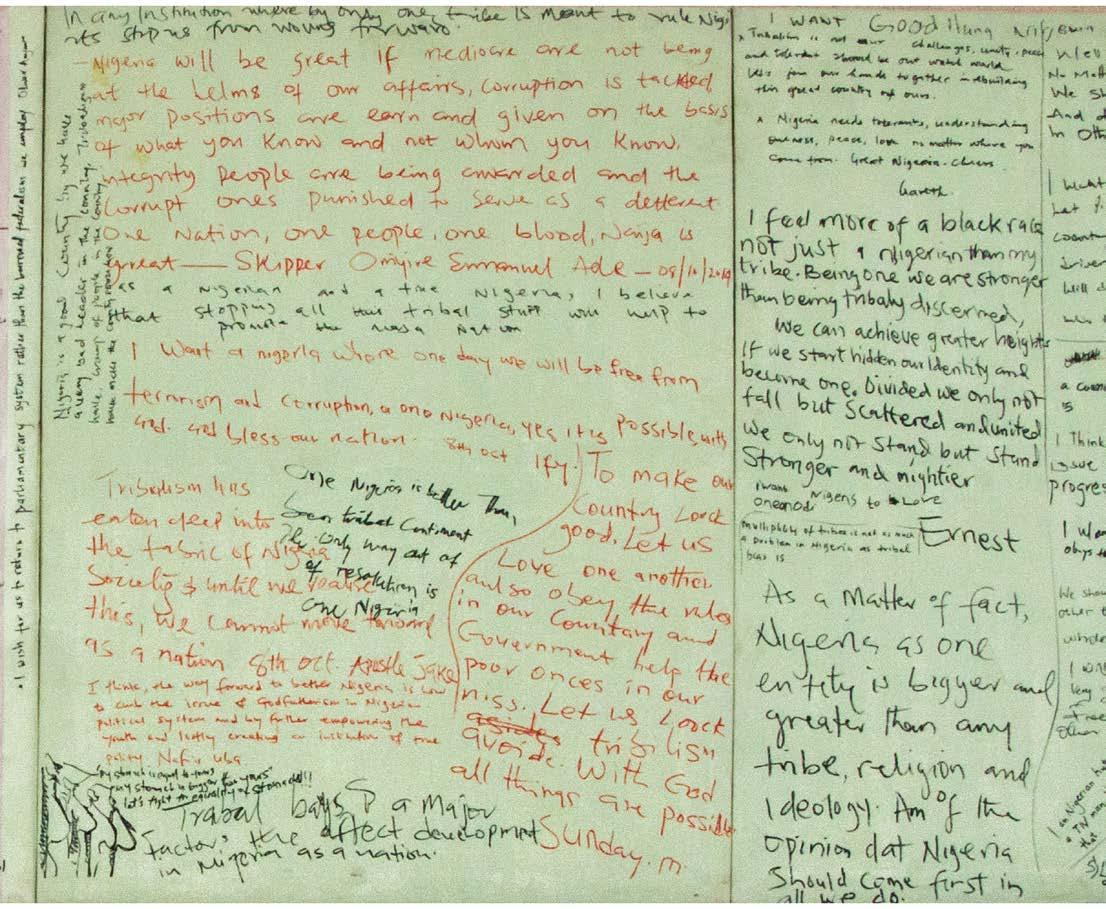 In any Institution where by only one tribe is meant to rule
its stop us from moving forward.
- Nigeria will be great if mediocre are not being
at the helms of our affairs, corruption is tackled,
major positions are earn and given on the basis
of what you know and not whom you know.
integrity people are being awarded and the
corrupt ones punished to serve as a detterent
One Nation, one people, one blood, Naija is
great — Skipper Emmanuel Ade - 08/10/2014
as a Nigerian and a true Nigeria, I believe
that stopping all this tribal stuff will help to
promote the Nation
I want a nigeria where one day we will be free from
terrorism and corruption, a one Nigeria, yes it is possible with
God. God bless our nation. 8th oct Ify.
Tribalism has
eaten deep into
the fabric of Nigeria
Society & until we realise
this, we cannot move forward
as a nation 8th oct. Apostle Jake
One Nigeria is better than
tribal
The only way out of
of resolution is
one Nigeria
I think, the way forward to better Nigeria is how
to curb the issue of Godfatherism in Nigerian
political system and by further empowering the
youth and lastly creating an institution of true
Nafiu uba
"my stomach is equal to yours
"my stomach is bigger than yours"
let's fight for equality of stomach!!!
Trabal bays is a Major
Factor, the affect development
in Nigeria as a nation.
To make our
Country Lorck
good. Let us
Love one another
and so obey the rules
in our Country and
Government help the
poor onces in our
miss. Let us Lorck
avoide tribilism
With God
all things are possible
Sunday. m.
• I wish for us to return to parliamentary system rather than the borrowed federalism we employ
Nigeria is a good Country by we have
a very bad leader in the country. Tribalism
have group of people in the country
I WANT Good thing
* Tribalism is not our challenges, unity, peace
and tolerant should be our watch world
let's join our hands together in rebuilding
this great country of ours.
* Nigeria needs tolerants, understanding
oneness, peace, love no matter where you
come from. Great Nigeria. cheers
Gareth.
I feel more of a black race
not just a nigerian than my
tribe. Being one we are stronger
than being tribaly discerned,
We can achieve greater heights
If we start hidden our Identity and
become one. Divided we only not
fall but Scattered and united
we only not stand but stand
Stronger and mightier
I want Nigens to Love
one anoda
Multiplicity of tribes is not as much
a problem in Nigeria as tribal
bias is
Ernest
As a Matter of fact,
Nigeria as one
entity is bigger and
greater than any
tribe, religion and
Ideology. Am of the
opinion dat Nigeria
Should come first in
all we do.
Well
No Matt
We sh
And d
In Oth
I want
Let
count
driver
will d
a coun
is
I think
issue
progres
I wan
obys t
We shou
other t
whole
I will
very
other